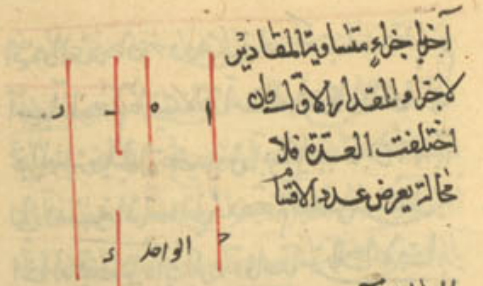 آخر اجزاءٍ متساوية المقادير
لاجزاء المقدار الاول فان
اختلفت العدة فلا
محالة يعرض عدد الاقسا
ا ه ب ز
ح الواحد ء